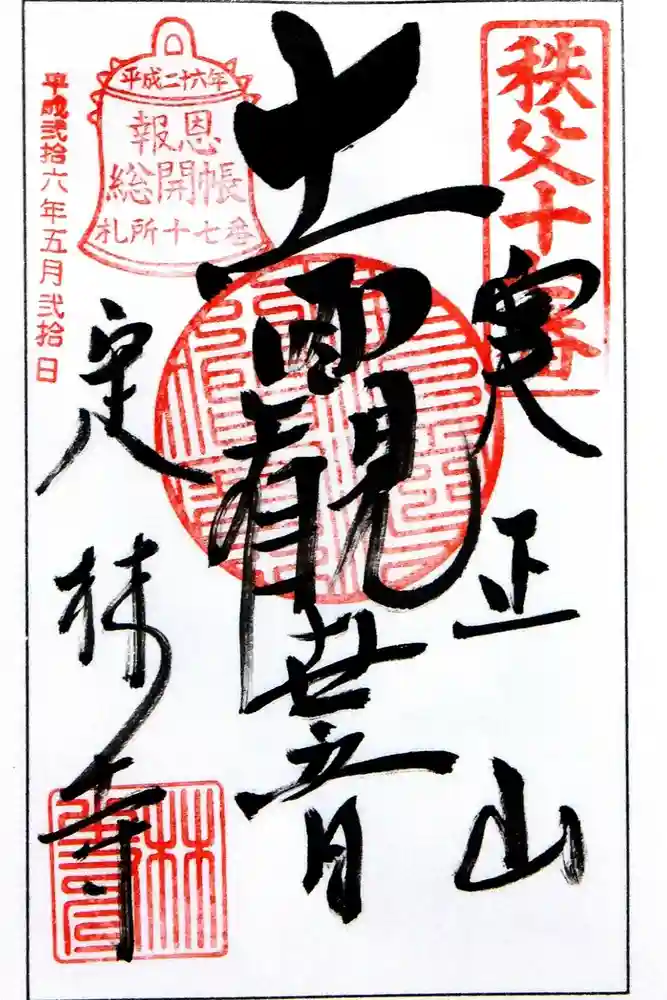 秩父十七番
実正山
十一面観世音
平成二十六年
報恩
総開帳
札所十七番
平成弐拾六年五月弐拾日
定林寺